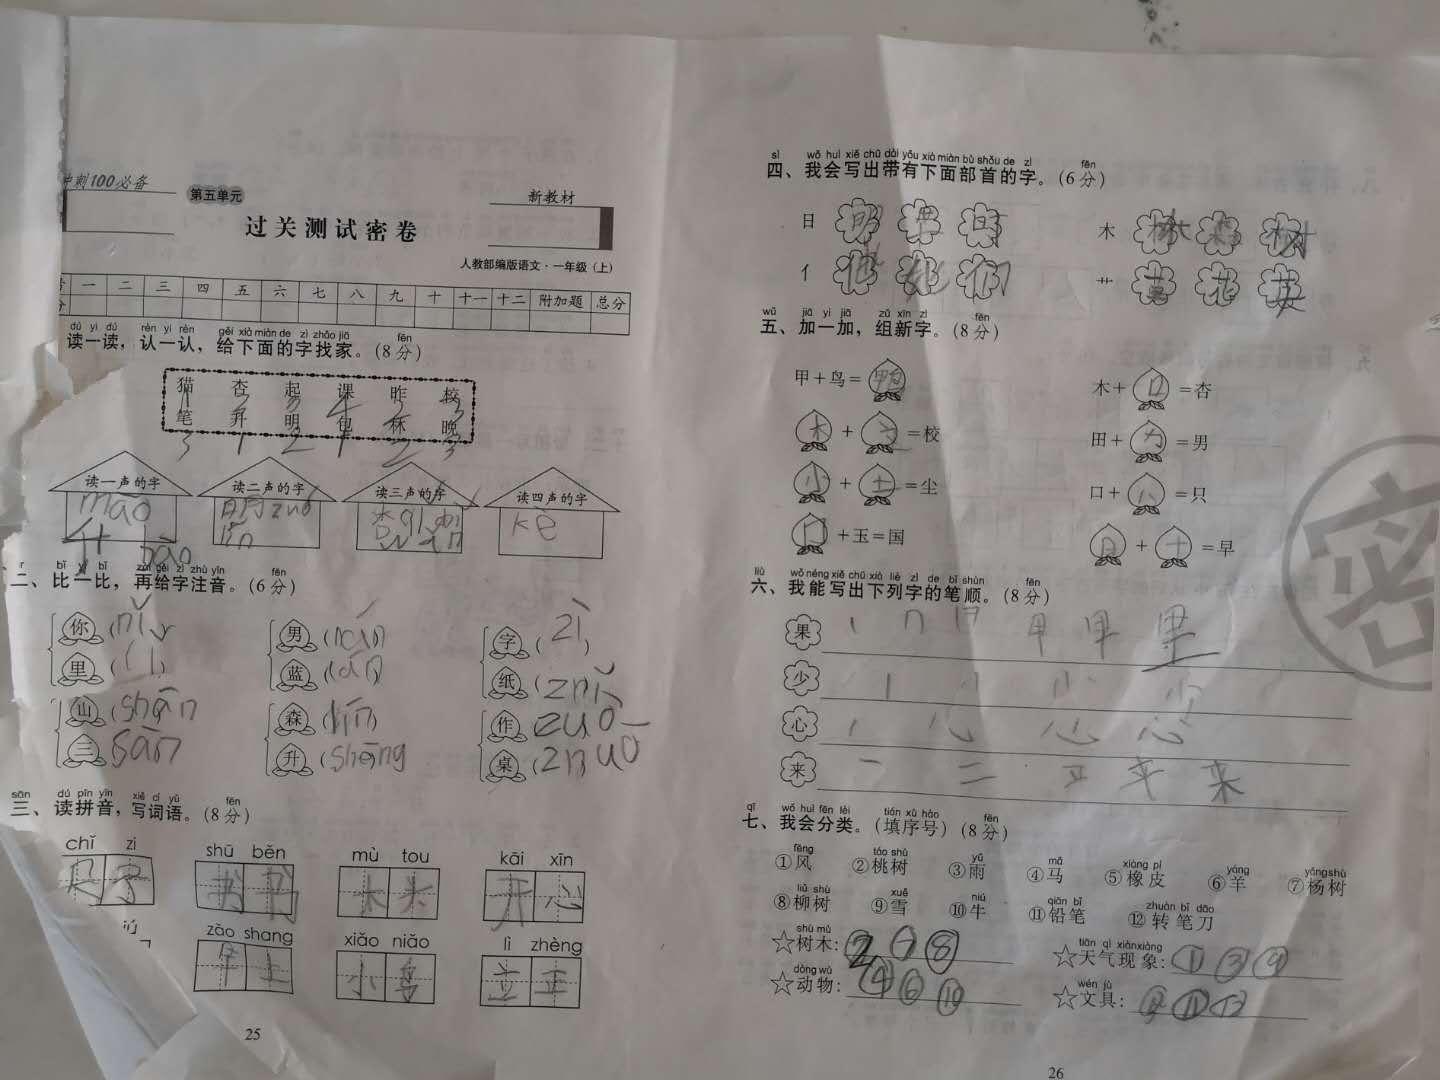 冲刺100必备
第五单元
新教材
过关测试密卷
人教部编版语文·一年级（上）
一 二 三 四 五 六 七 八 九 十 十一 十二 附加题 总分
dú yi dú rèn yi rèn gěi xià miàn de zì zhǎo jiā fēn
读一读，认一认，给下面的字找家。（8分）
猫 杏 起 课 昨 校
1 3 3 4 2 3
笔 升 明 包 林 晚
3 1 2 1 2 3
读一声的字 读二声的字 读三声的字 读四声的字
māo 明 zuó 杏 kè
升 lín
bāo
bǐ yi bǐ zài gěi zì zhù yīn fēn
二、比一比，再给字注音。（6分）
你（nǐ 男（nán） 字（zì）
里（lǐ） 蓝（lán） 纸（zhǐ
仙（shān 森（ 作（zuō
三（sān 升（shēng 桌（zhuō
sān dú pīn yīn xiě cí yǔ fēn
三、读拼音，写词语。（8分）
chǐ zi shū běn mù tou kāi xīn
尺 字 书 书 木 头 开 心
zǎo shang xiǎo niǎo lì zhèng
早 上 小 鸟 立 正
25
sì wǒ huì xiě chū dài yǒu xià miàn bù shǒu de zì fēn
四、我会写出带有下面部首的字。（6分）
日 明 早 时 木 林 森 树
亻 他 化 们 艹 草 花 英
wǔ jiā yi jiā zǔ xīn zì fēn
五、加一加，组新字。（8分）
甲+鸟=鸭 木+口=杏
木+交=校 田+力=男
小+土=尘 口+八=只
口+玉=国 日+十=早
liù wǒ néng xiě chū xià liè zì de bǐ shùn fēn
六、我能写出下列字的笔顺。（8分）
果
少
心
来
qī wǒ huì fēn lèi tián xù hào fēn
七、我会分类。（填序号）（8分）
fēng táo shù yǔ mǎ xiàng pí yáng yáng shù
①风 ②桃树 ③雨 ④马 ⑤橡皮 ⑥羊 ⑦杨树
liǔ shù xuě niú qiān bǐ zhuàn bǐ dāo
⑧柳树 ⑨雪 ⑩牛 ⑪铅笔 ⑫转笔刀
shù mù tiān qì xiàn xiàng
☆树木：② ⑦ ⑧ ☆天气现象：① ③ ⑨
dòng wù wén jù
☆动物：④ ⑥ ⑩ ☆文具：⑤ ⑪ ⑫
密
26